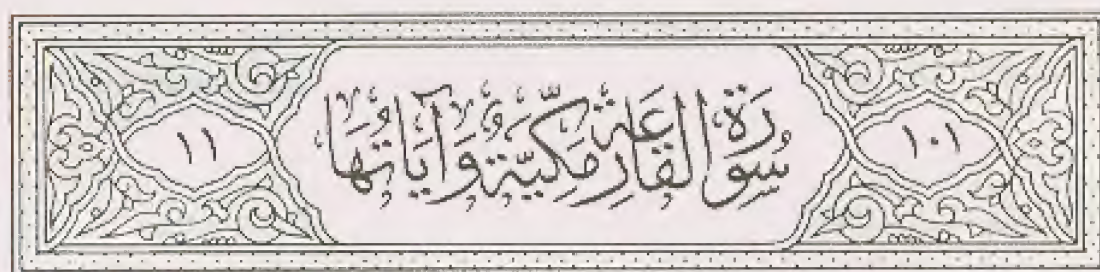 ١٠١ سُورَةُ القَارِعَةِ مَكِّيَّةٌ وَآيَاتُهَا ١١